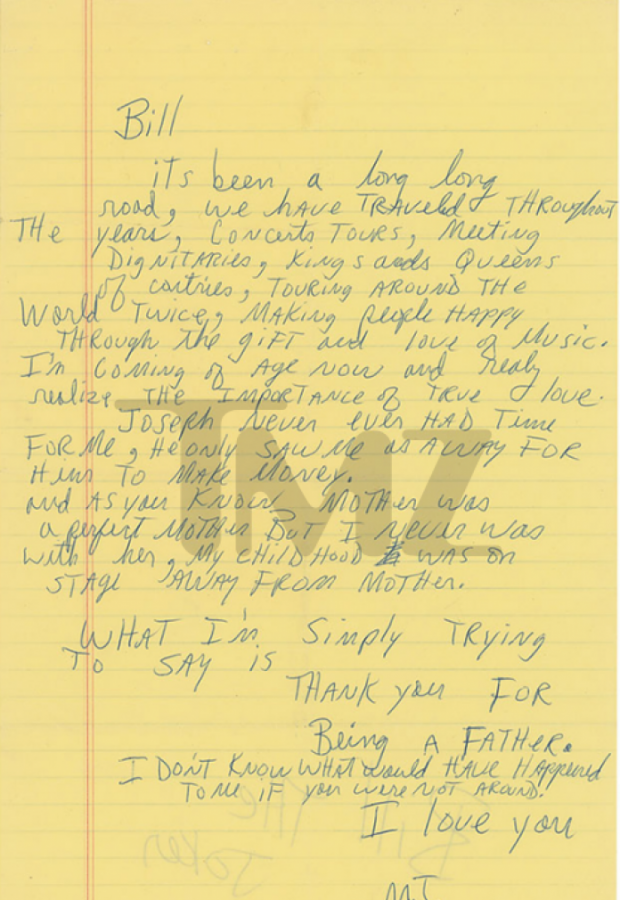 Bill
its been a long long
road, we have TRAVeled THROughout
THe years, Concerts TOURS, Meeting
DigNiTARies, Kings ands Queens
of contries, TOURiNg AROUND THe
World Twice, MAKiNg people HAPPy
THROugh the giFT and love of Music.
I'm Coming of Age Now and realy
realize THe IMPORTANce of TRue love.
Joseph Never ever HAD Time
FOR Me, He only SAW Me as A WAY FOR
Him To MAKe Money.
and As you KNow, MOTHer was
a perfect MOTHer BuT I Never was
with her, My CHILDHOOD WAS on
STAge AWAY FROM MOTHer.
WHAT I'm Simply TRying
To SAY is
THANK you FOR
Being A FATHeR.
I DON'T KNow WHAT would HAVe HAppened
TO Me iF you weRe NOT AROUND.
I love you
MJ
TMZ
Bill THe
Joker